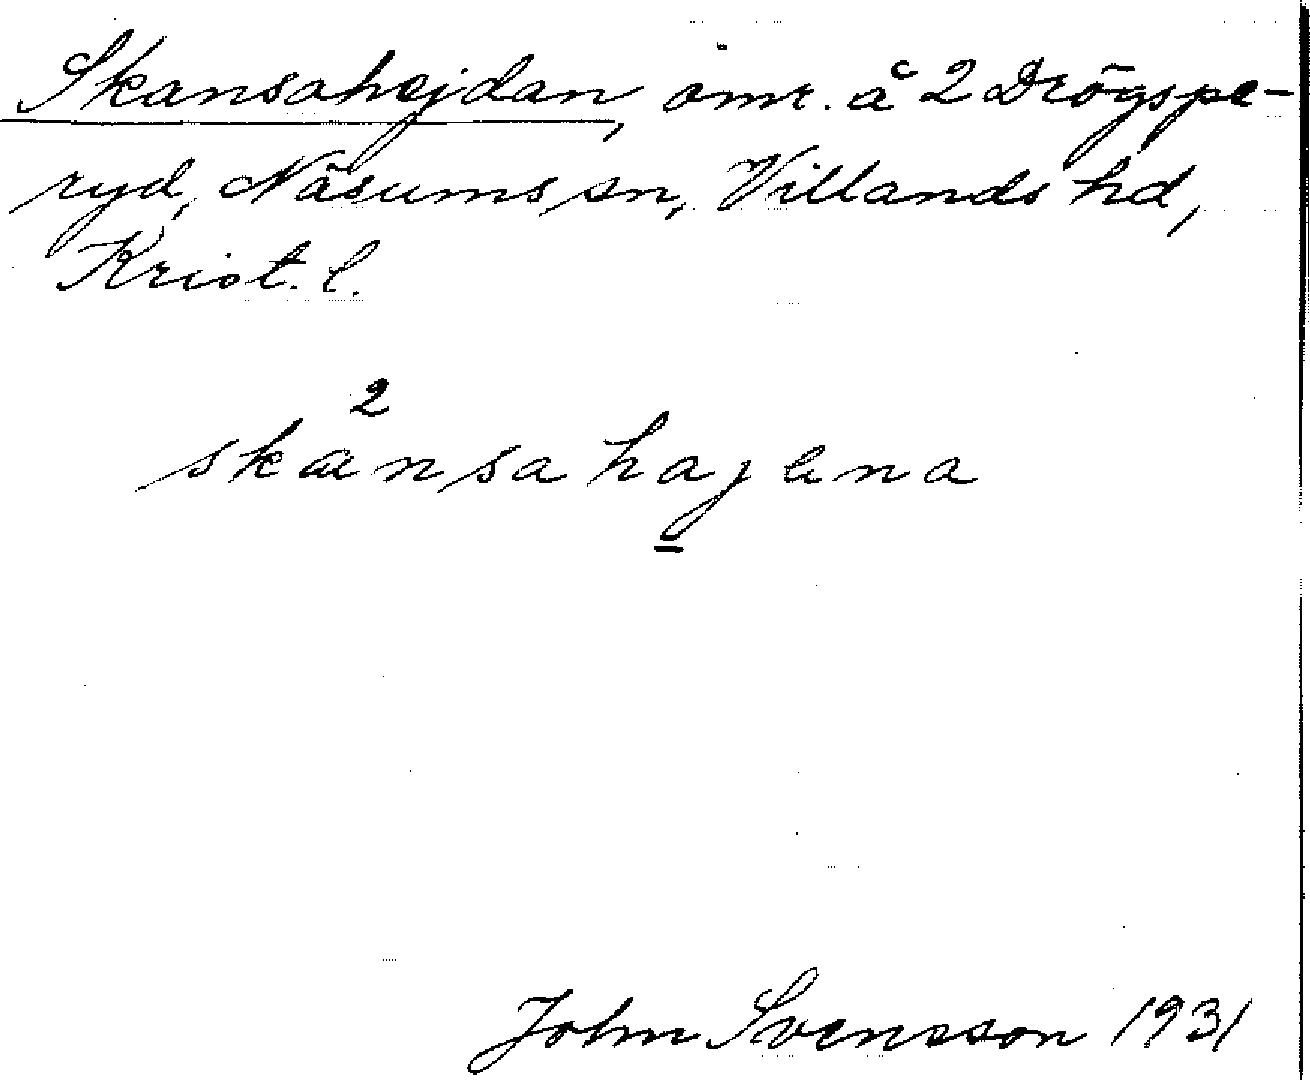 Skansahejdan, omr. å 2 Drögspe-
ryd, Näsums sn, Villands hd,
Krist. l.
2
skænsahajena
John Svensson 1931